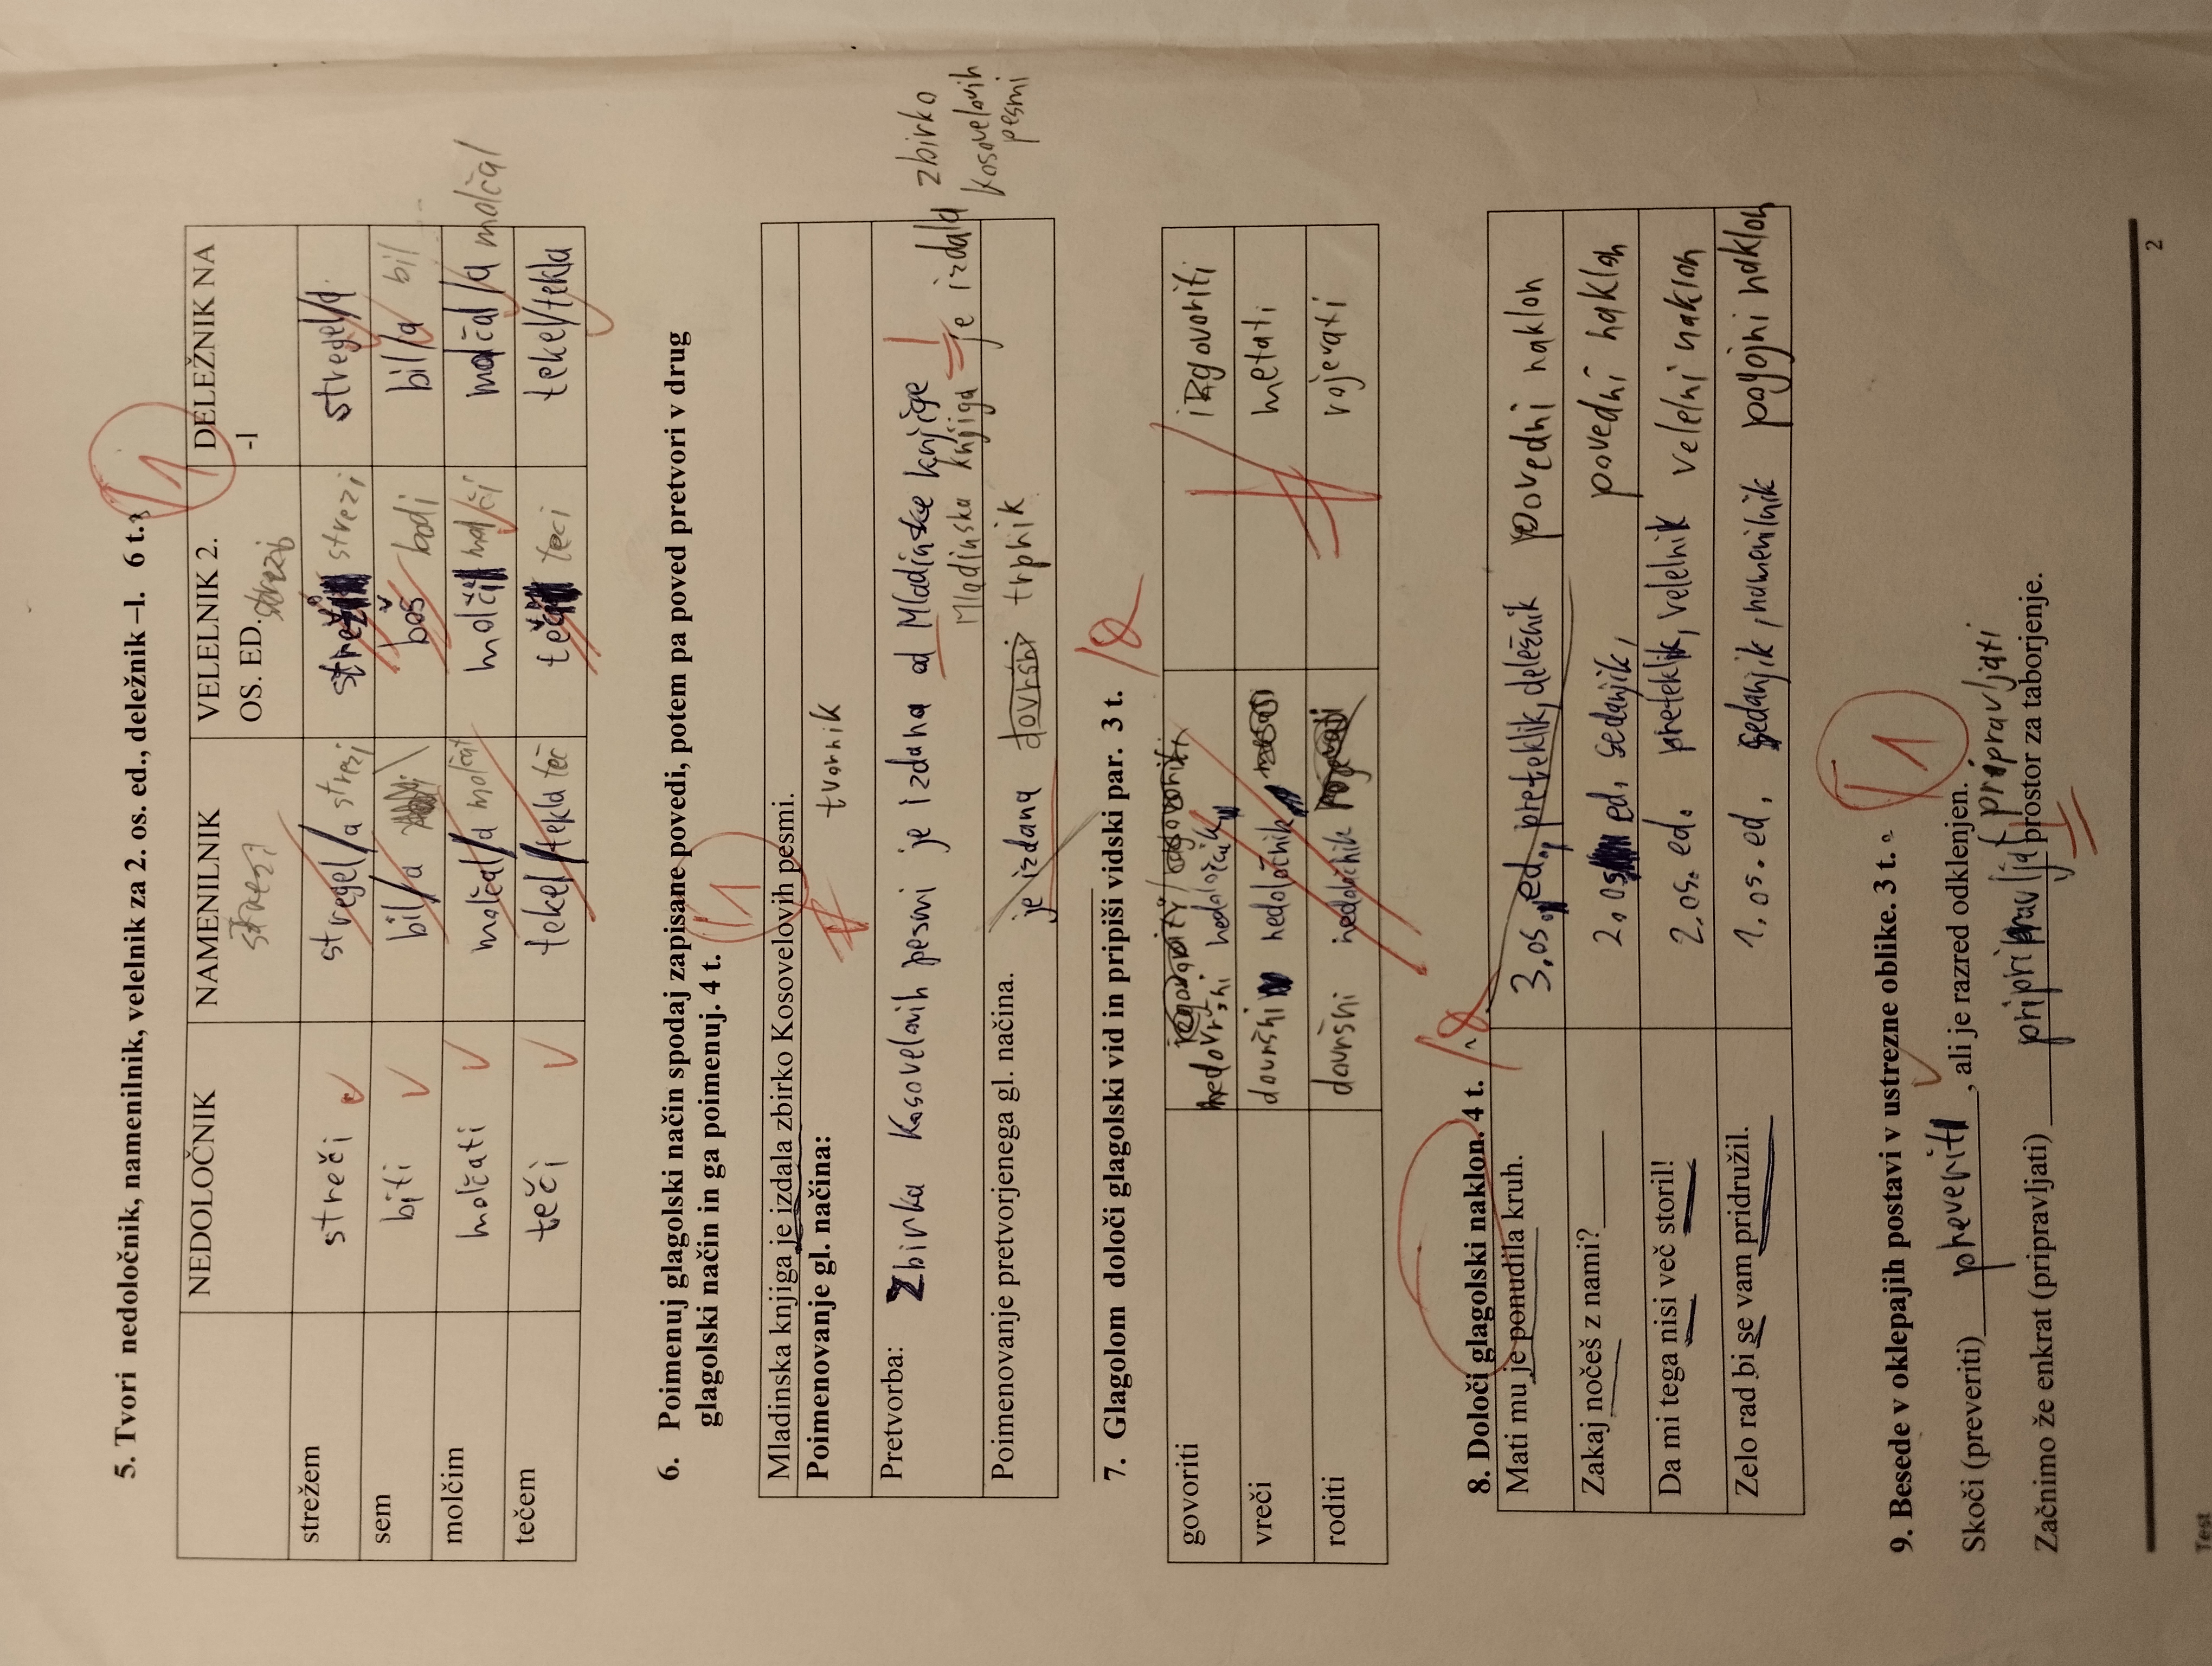 5. Tvori nedoločnik, namenilnik, velelnik za 2. os. ed., deležnik –l. 6 t.
1
NEDOLOČNIK NAMENILNIK VELELNIK 2. OS. ED. DELEŽNIK NA -l
strezi strezi
strežem streči stregel/a strezi strezi stregel/a
sem biti bil/a boš bodi bil/a bil
molčim molčati molčal/a molčat molči molči molčal/a molčal
tečem teči tekel/tekla teč teci tekel/tekla
6. Poimenuj glagolski način spodaj zapisane povedi, potem pa poved pretvori v drug
glagolski način in ga poimenuj. 4 t.
1
Mladinska knjiga je izdala zbirko Kosovelovih pesmi.
Poimenovanje gl. načina: tvornik
Pretvorba: Zbirka Kosovelovih pesmi je izdana od Mladinske knjige
Mladinska knjiga je izdala zbirko
Kosovelovih
pesmi
Poimenovanje pretvorjenega gl. načina. je izdana dovršni trpnik
7. Glagolom določi glagolski vid in pripiši vidski par. 3 t.
govoriti nedovršni nedoločnik izgovoriti
vreči dovršni nedoločnik metati
roditi dovršni nedoločnik rojevati
8. Določi glagolski naklon. 4 t.
Mati mu je ponudila kruh. 3. os., ed., preteklik, deležnik povedni naklon
Zakaj nočeš z nami?______ 2. os ed. sedanjik, povedni naklon
Da mi tega nisi več storil! 2. os. ed. preteklik, velelnik velelni naklon
Zelo rad bi se vam pridružil. 1. os. ed. sedanjik, namenilnik pogojni naklon
9. Besede v oklepajih postavi v ustrezne oblike. 3 t.
1
Skoči (preveriti) preverit, ali je razred odklenjen.
pripravljati
Začnimo že enkrat (pripravljati) pripripravljat prostor za taborjenje.
2
Test